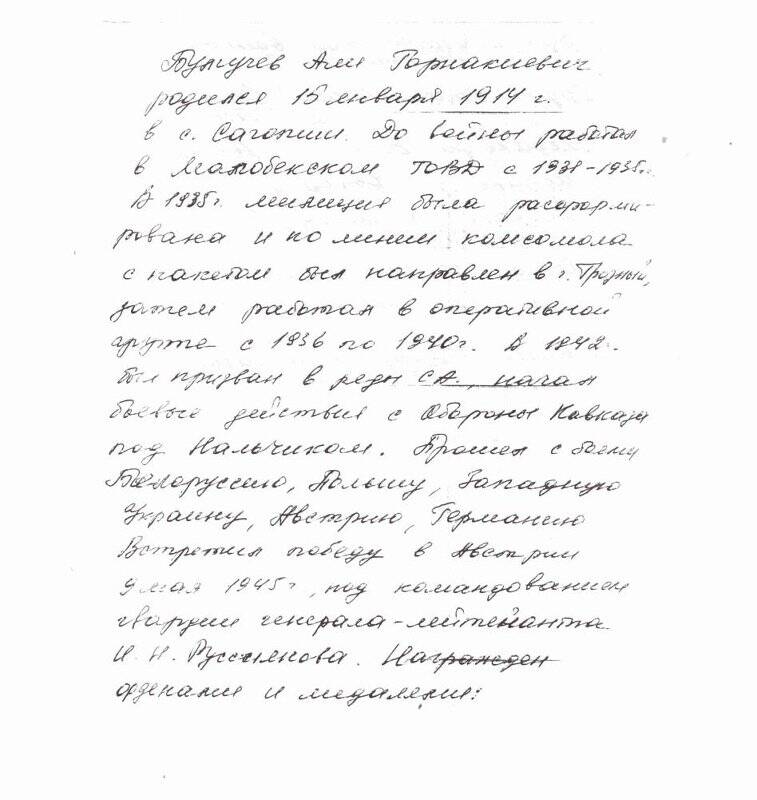 Булгучев Али Горнакиевич
родился 15 января 1914 г.
в с. Сагопши. До войны работал
в Малгобекском ГОВД с 1931-1935г.
В 1935г. милиция была расформи-
рована и по линии комсомола
с пакетом был направлен в г. Грозный,
затем работал в оперативной
группе с 1936 по 1940г. В 1942г.
был призван в ряды СА., начал
боевые действия с Обороны Кавказа
под Нальчиком. Прошел с боями
Белоруссию, Польшу, Западную
Украину, Австрию, Германию
Встретил победу в Австрии
9 мая 1945г, под командованием
гвардии генерала-лейтенанта
И. Н. Руссиянова. Награжден
орденами и медалями: